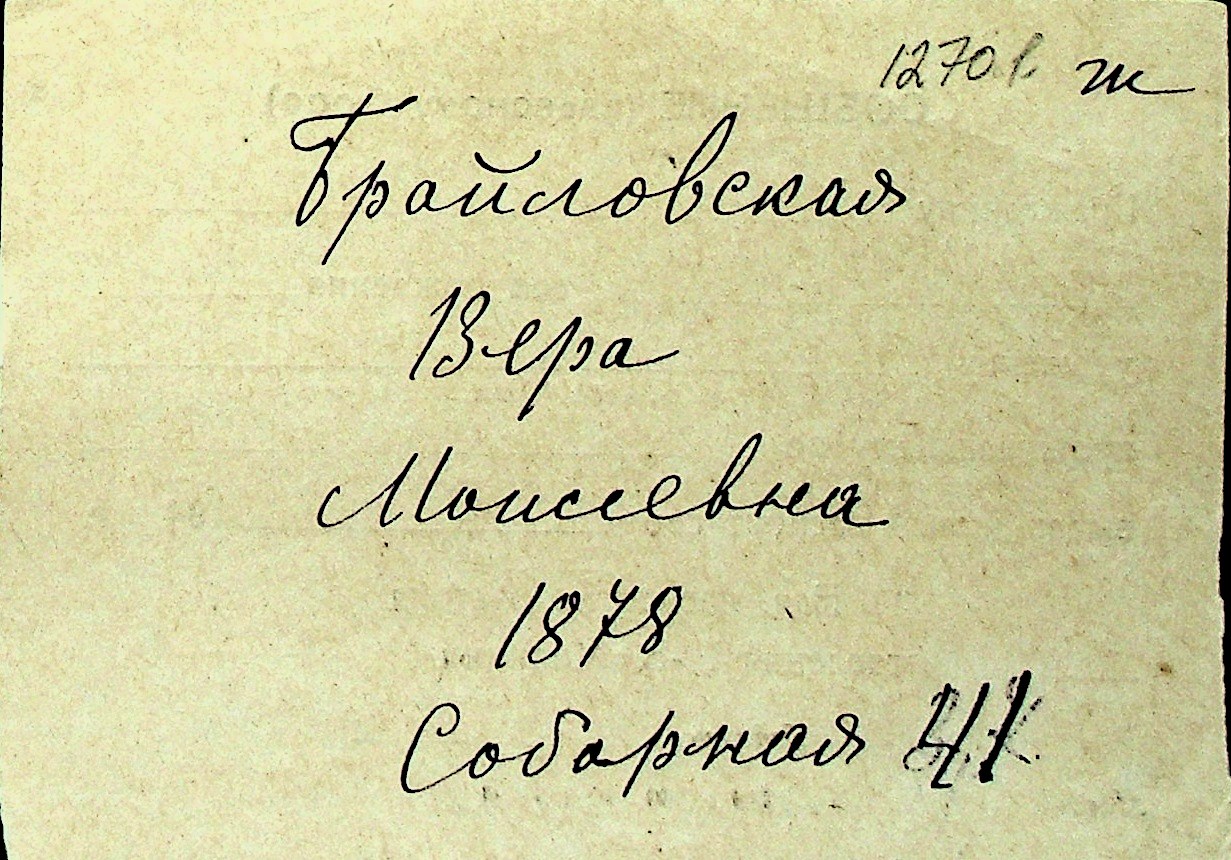 1270 ж
Брайловская
Вера
Моисеевна
1878
Соборная 41